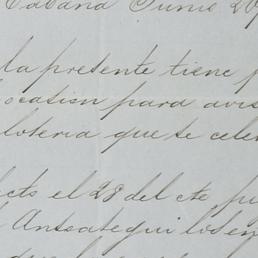 Habana Junio 20
la presente tiene p
ocation para avis
loteria que se cele
el 28 del cte p
Anzategui los en